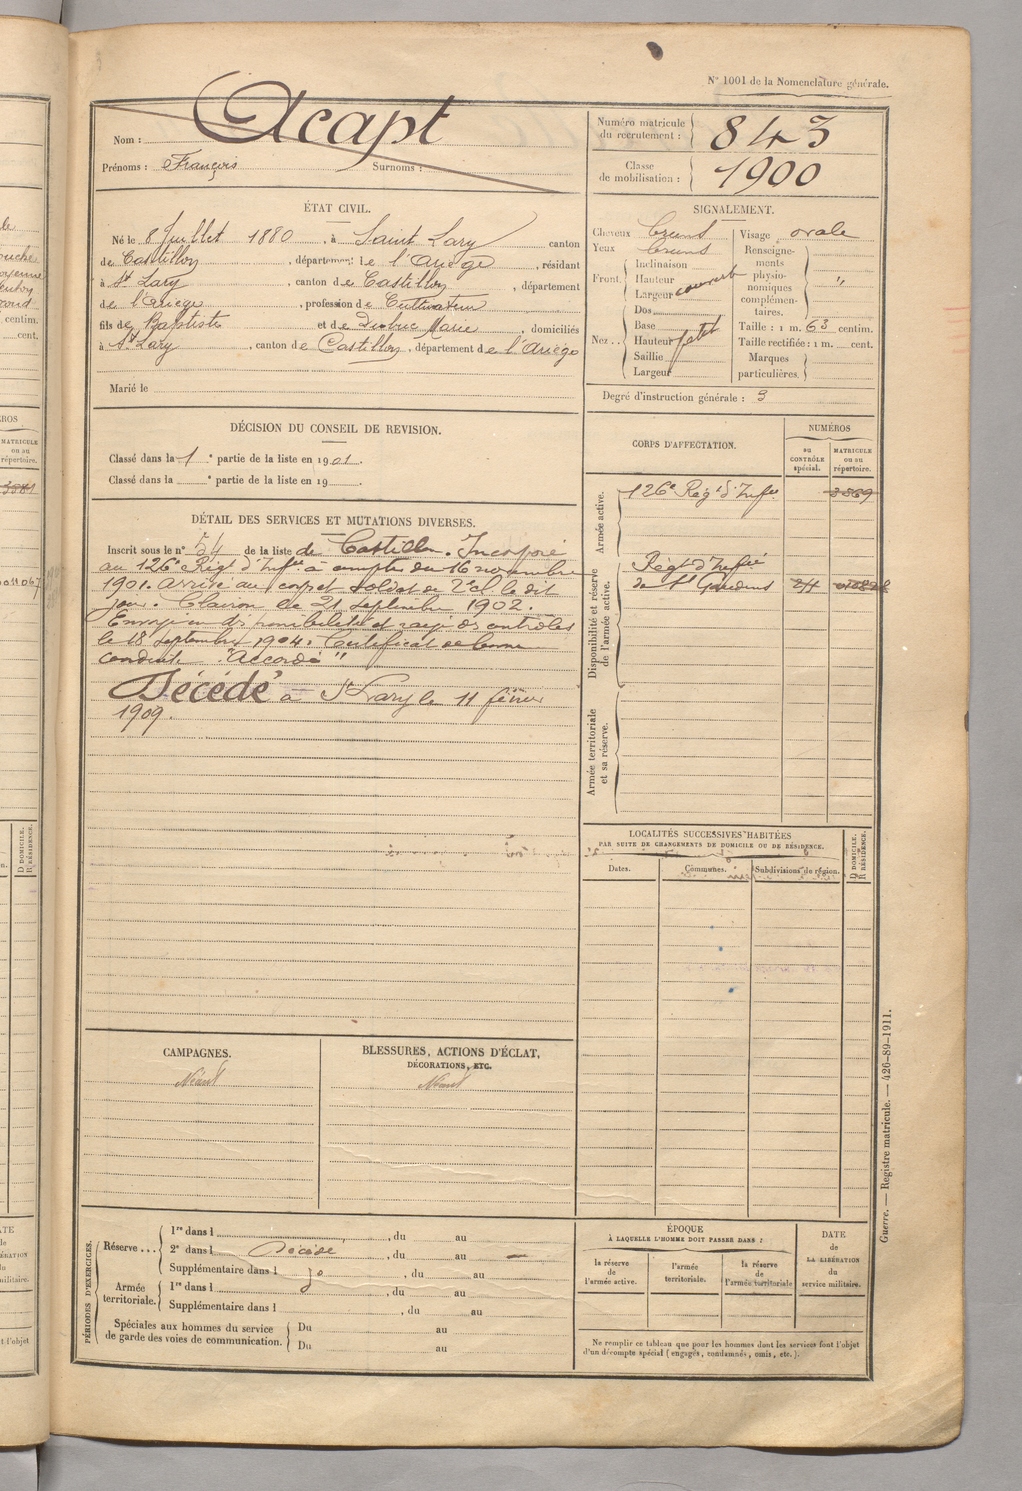 N° 1001 de la Nomenclature générale.
Nom : Acapt
Prénoms : François Surnoms :
Numéro matricule du recrutement : 843
Classe de mobilisation : 1900
ÉTAT CIVIL.
Né le 8 Juillet 1880, à Saint Lary canton
de Castillon, département de l'Ariège, résidant
à St Lary, canton de Castillon, département
de l'Ariège, profession de Cultivateur
fils de Baptiste et de Dubuc Marie, domiciliés
à St Lary, canton de Castillon, département de l'Ariège
Marié le
SIGNALEMENT.
Cheveux bruns
Yeux bruns
Front. Inclinaison
Hauteur
Largeur couvert
Nez.. Dos
Base
Hauteur petit
Saillie
Largeur
Visage ovale
Renseignements physionomiques complémentaires. "
Taille : 1 m. 63 centim.
Taille rectifiée : 1 m. cent.
Marques particulières.
Degré d'instruction générale : 3
DÉCISION DU CONSEIL DE REVISION.
Classé dans la 1e partie de la liste en 1901.
Classé dans la e partie de la liste en 19
DÉTAIL DES SERVICES ET MUTATIONS DIVERSES.
Inscrit sous le n° 54 de la liste de Castillon. Incorporé
au 126e Régt d'Infie à compter du 16 novembre
1901. arrivé au corps et soldat de 2e cl le dit
jour. Clairon le 21 septembre 1902.
Envoyé en disponibilité et rayé des contrôles
le 18 septembre 1904. Certificat de bonne
conduite "Accordé"
Décédé à St Lary le 11 février
1909.
CORPS D'AFFECTATION.
NUMÉROS
au CONTRÔLE spécial.
MATRICULE ou au répertoire.
Armée active.
126e Régt d'Infie 3869
Disponibilité et réserve de l'armée active.
Régt d'Infie
de St Gaudens 24
Armée territoriale et sa réserve.
LOCALITÉS SUCCESSIVES HABITÉES
PAR SUITE DE CHANGEMENTS DE DOMICILE OU DE RÉSIDENCE.
Dates. Communes. Subdivisions de région. D DOMICILE. R RÉSIDENCE.
CAMPAGNES.
Néant
BLESSURES, ACTIONS D'ÉCLAT,
DÉCORATIONS, ETC.
Néant
PÉRIODES D'EXERCICES.
Réserve... 1re dans l , du au
2e dans l Décédé , du au
Supplémentaire dans l , du au
Armée territoriale. 1re dans l , du au
Supplémentaire dans l , du au
Spéciales aux hommes du service de garde des voies de communication. Du au
Du au
ÉPOQUE
À LAQUELLE L'HOMME DOIT PASSER DANS :
la réserve de l'armée active.
l'armée territoriale.
la réserve de l'armée territoriale
DATE de LA LIBÉRATION du service militaire.
Ne remplir ce tableau que pour les hommes dont les services font l'objet
d'un décompte spécial (engagés, condamnés, omis, etc.).
Guerre. — Registre matricule. — 426-89-1911.